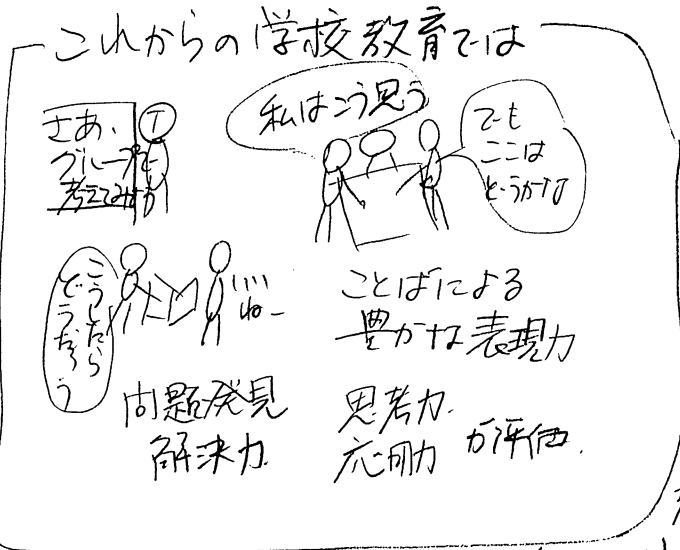 これからの学校教育では
さあ、
グループで
考えてみようか
T
私はこう思う
でも
ここは
どうかな
こうしたら
どうだろう
いい
ねー
ことばによる
豊かな表現力
問題発見
解決力
思考力
応用力
が評価